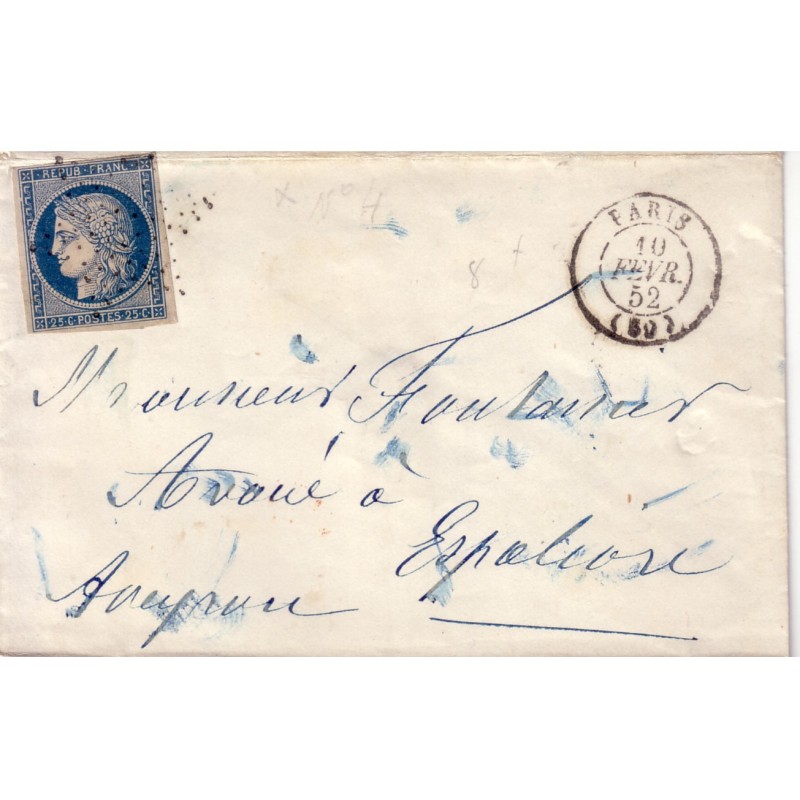 REPUB·FRANC·
25·C·POSTES·25·C·
× N° 4
8 +
PARIS
10
FEVR.
52
(60)
Monsieur Fontanier
Avoué à
Espalion
Aveyron